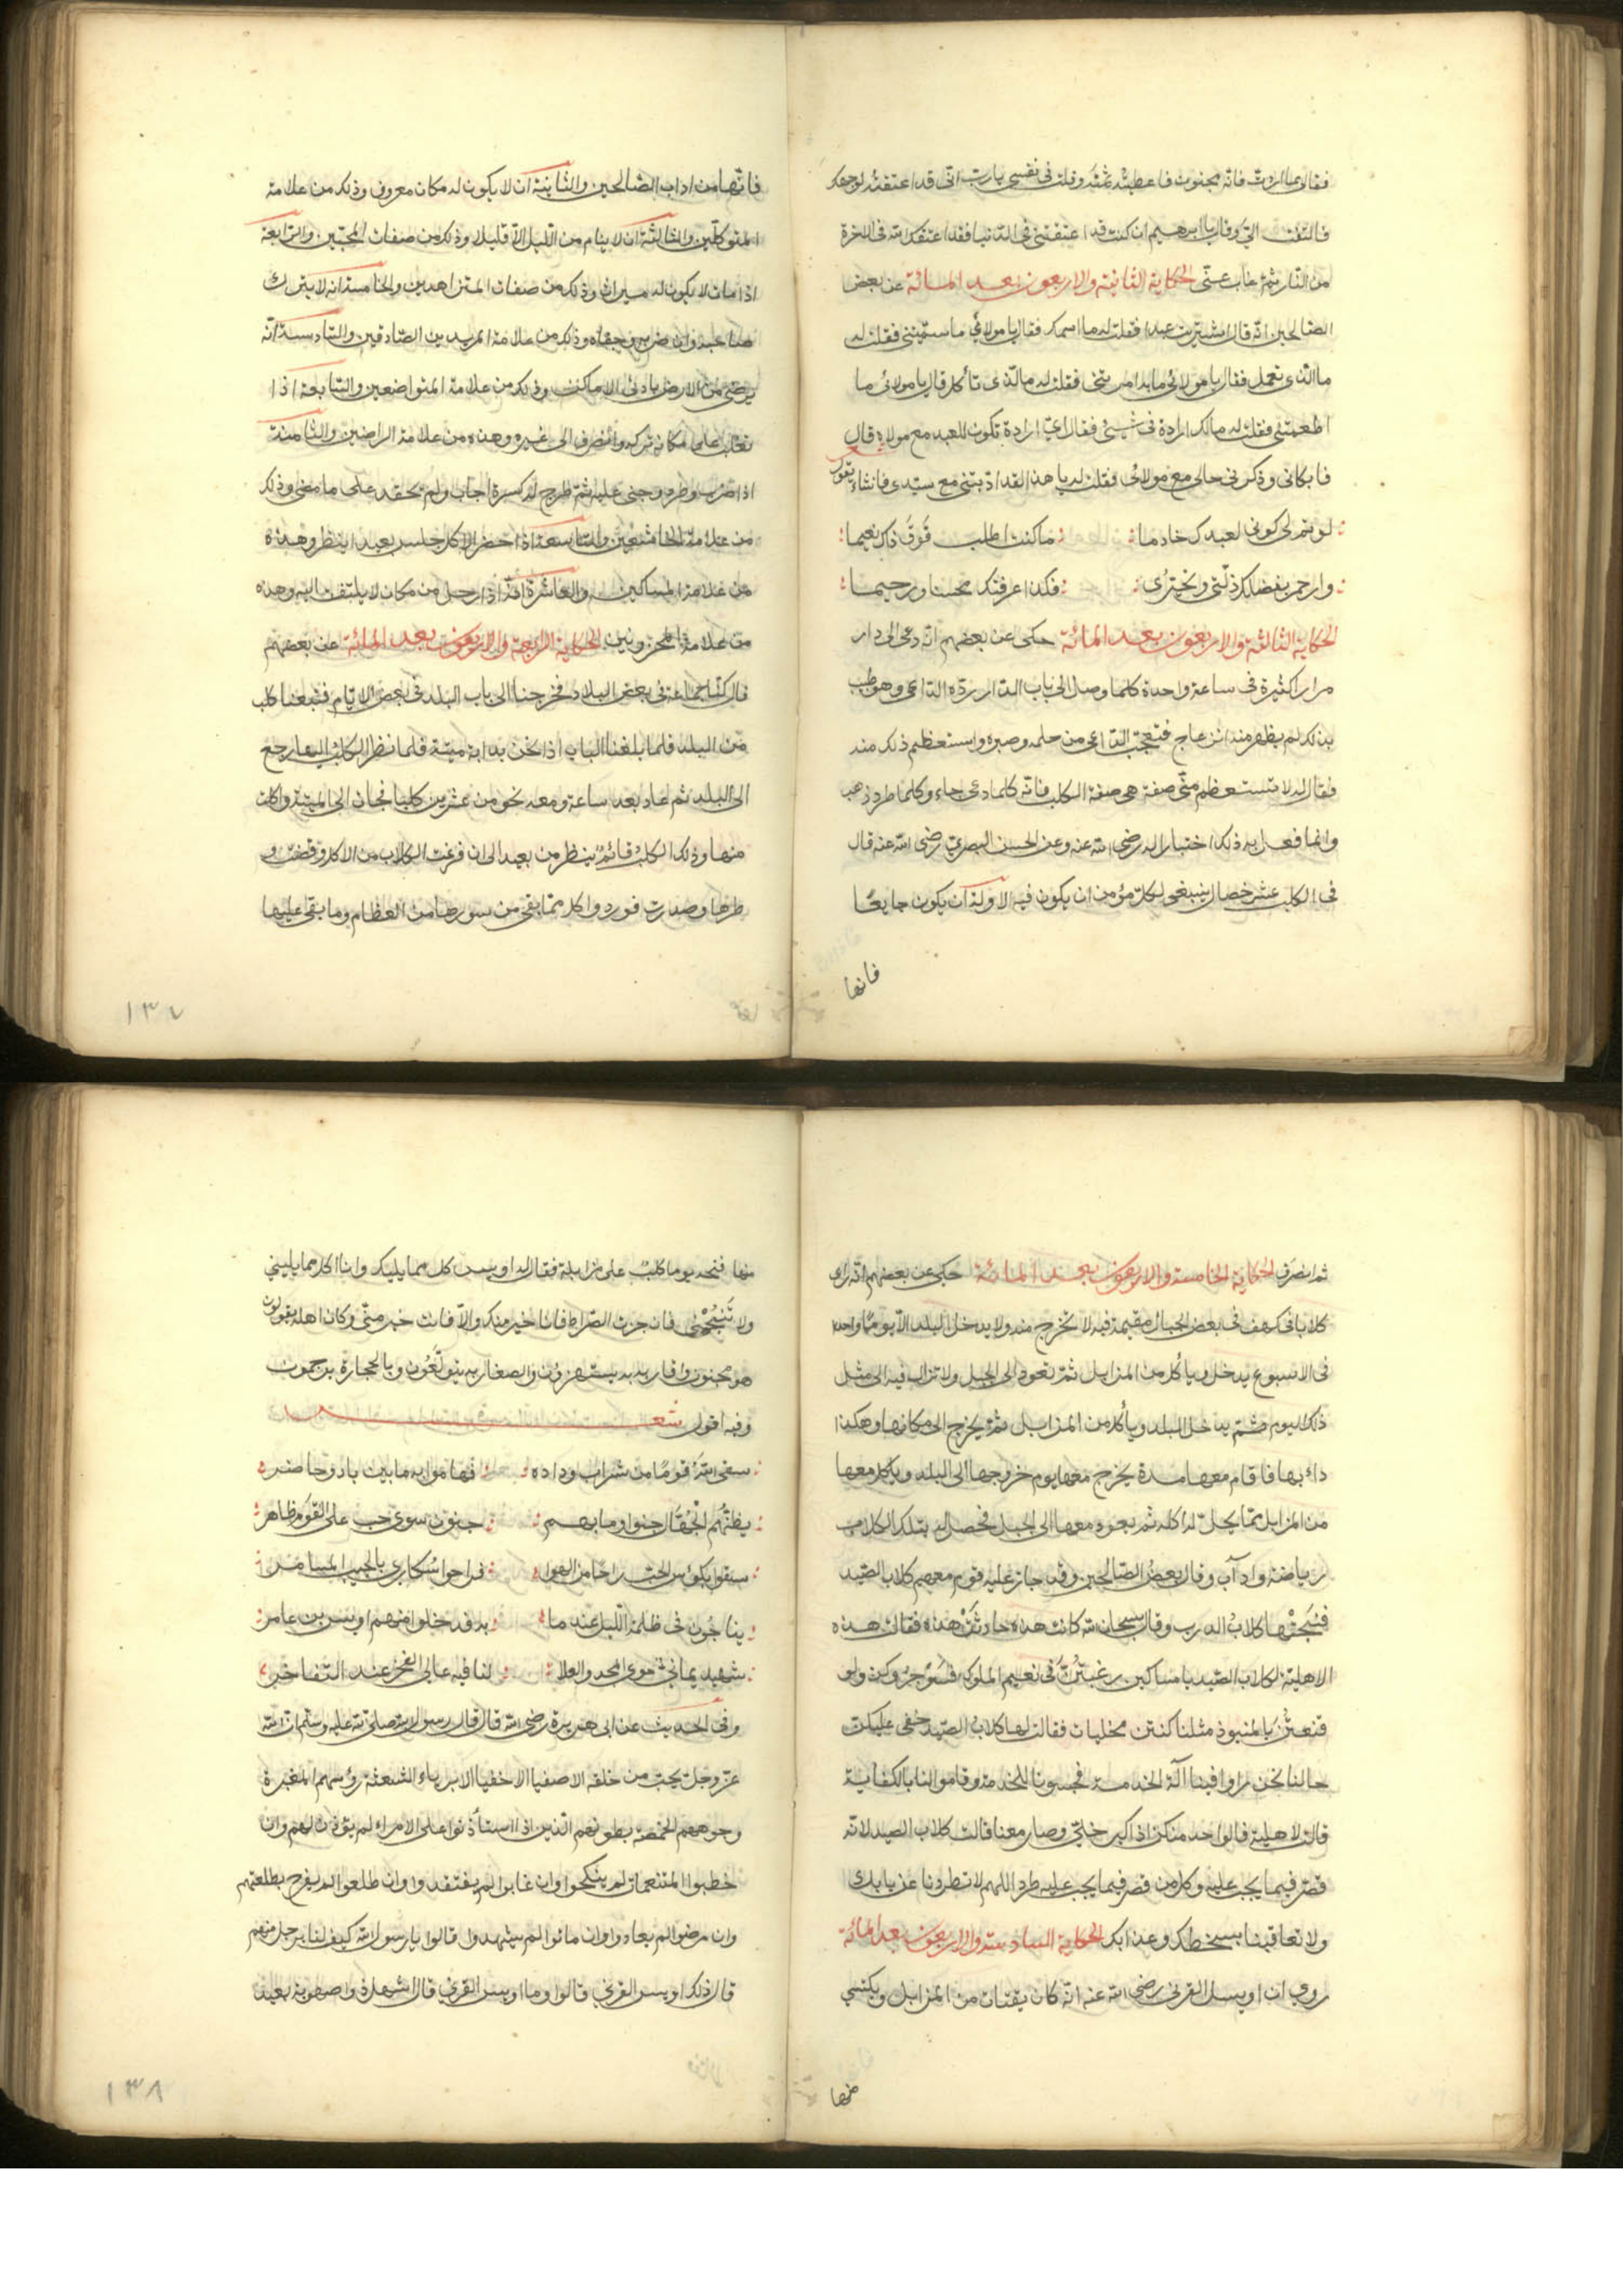 فقال يا ما اردت فانه مجنون فاعطيته ثمنه وقلت فى نفسى يارب انى قد اعتقته لوجهك
فالتفت الىّ وقال يا ابرهيم ان كنت قد اعتقتنى فى الدنيا فقد اعتقك الله فى الاخرة
من النار ثم غاب عنّى الحكاية الثانية والاربعون بعد المائة عن بعض
الصالحين انّه قال اشتريت عبدا فقلت له ما اسمك فقال يا مولائى ما سمّيتنى فقلت له
ما الذى تعمل فقال يا مولائى ما به امرتنى فقلت له ما الّذى تأكل قال يا مولائى ما
اطعمتنى فقلت له مالك ارادة فى شيئ فقال اىّ ارادة تكون للعبد مع مولاه قال
فابكانى وذكرنى حالى مع مولائى فقلت له يا هذا لقد ادّبتنى مع سيّدى فانشاء يقول
لو يتم لى كونى لعبدك خادما ما كنت اطلب فوق ذاك نعيما
وارحم بفضلك ذلّتى وتحيّرى فكذا عرفتك محسنا ورحيما
الحكاية الثالثة والاربعون بعد المائة حكى عن بعضهم انه دعى الى دار
مرارا كثيرة فى ساعة واحدة كلما وصل الى باب الدار ردّه الداعى وهو طيب
بذلك لم يظهر منه انزعاج فتعجّب الداعى من حلمه وصبره واستعظم ذلك منه
فقال له لا تستعظم منّى صفة هى صفة الكلب فانه كلما دعى جاء وكلما طرد ذهب
وانما فعل به ذلك اختبارا له رضى الله عنه وعن الحسن البصرىّ رضى الله عنه قال
فى الكلب عشر خصال ينبغى لكلّ مؤمن ان يكون فيه الاولة ان يكون جايعًا
فانها
فانّها من اداب الصالحين والثانية ان لا يكون له مكان معروف وذلك من علامة
المتوكلين والثالثة ان لا ينام من الّليل الّا قليلا وذلك من صفات المحبّين والرابعة
اذا مات لا يكون له ميراث وذلك من صفات المتزاهدين والخامسة انه لا يترك
صاحبه وان ضربه وجفاه وذلك من علامة المريدين الصادقين والسادسة انّه
يرضى من الارض بادنى الاماكن وذلك من علامة المتواضعين والسابعة اذا
تغلّب على مكانه تركه وانصرف الى غيره وهذه من علامة الراضين والثامنة
اذا ضرب وطرد وجفى عليه ثمّ طرح له كسرة اجاب ولم يحقد على ما مضى وذلك
من علامة الخاشعين والتاسعة اذا حضر الاكل جلس بعيدا ينظر وهذه
من علامة المساكين والعاشرة انّه اذا رحل من مكان لا يلتفت اليه وهذه
من علامة المحزونين الحكاية الرابعة والاربعون بعد المائة عن بعضهم
قال كنّا جماعة فى بعض البلاد فخرجنا الى باب البلد فى بعض الايّام فتبعنا كلب
من البلد فلما بلغنا الباب اذا نحن بدابة ميتة فلما نظر الكلب اليها رجع
الى البلد ثم عاد بعد ساعة ومعه نحو من عشرين كلبا فجات الى الميتة واكلت
منها وذلك الكلب قائم ينظر من بعيد الى ان فرغت الكلاب من الاكل وقضت و
طرها وصدرت فورد واكل ممّا بقى من سورها من العظام وما بقى عليها
١٣٧
ثم انصرف الحكاية الخامسة والاربعون بعد المائة حكى عن بعضهم انّه راى
كلابا فى كهف فى بعض الجبال مقيمة فيه لا تخرج منه ولا يدخل البلد الّا يومًا واحدا
فى الاسبوع يدخل ويأكل من المزابل ثمّ تعود الى الجبل ولا تزال فيه الى مثل
ذلك اليوم ثمّ يدخل البلد ويأكل من المزابل ثمّ يخرج الى مكانها وهكذا
داء بها فاقام معها مدة يخرج معها يوم خروجها الى البلد وياكل معها
من المزابل ممّا يحلّ له اكله ثم يعود معها الى الجبل فحصل له بتلك الكلاب
رياضة وادآب وقال بعض الصالحين وقد جاز عليه قوم معهم كلاب الصيد
فنبحتها كلاب الدرب وقال سبحان الله كانت هذه حادثت هذه فقالت هذه
الاهلية لكلاب الصيد يا مساكين رغبتنّ فى نعيم الملوك فسوجروكن ولو
قنعتنّ بالمنبوذ مثلنا كنتن مخليات فقالت لها كلاب الصيد خفى عليكن
حالنا نحن راوا فينا آلة الخدمة فحبسونا للخدمة وقاموا لنا بالكفاية
قالت الاهلية قالوا واحد منكن اذا كبر خلّى وصار معنا قالت كلاب الصيد لانّه
قصّر فيما يجب عليه وكل من قصر فيما يجب عليه طرد اللهم لا تطردنا عن بابك
ولا تعاقبنا بسخطك وعذابك الحكاية السادسة والاربعون بعد المائة
روى ان اويس القرنى رضى الله عنه انّه كان يقتات من المزابل ويكتسى
منها
منها فنبحه يوما كلب على مزابلة فقال له اويس كل مما يليك وانا اكل مما يلينى
ولا تنبحنى فان جزت الصراط فانا خير منك والّا فانت خير منّى وكان اهله يقولون
هو مجنون واقاربه به يستهزؤن والصغار به يتولّعون وبالحجارة يرجمون
وفيه اقول شعر
سقى الله قومًا من شراب وداده فهاموا به ما بين باد وحاضر
يظنّهم الجهّال جنوا وما بهم جنون سوى حب على القوم ظاهر
سقوا بكؤس الحب راحًا من الهوا فراحوا سكارى بالحبيب المسامر
يناجون فى ظلمة الّليل عند ما به قد خلوا منهم اويس بن عامر
شهيد يمانى حوى المجد والعلا لنا فيه عالى الفخر عند التفاخر
وفى الحديث عن ابى هريرة رضى الله قال قال رسول الله صلى الله عليه وسلّم ان الله
عزّ وجل يحب من خلقه الاصفيا الاخفيا الابرياء الشعثة رؤسهم المغبرة
وجوههم الخمصة بطونهم الّذين اذا استأذنوا على الامراء لم يؤذن لهم وان
خطبوا المتنعمات لم ينكحوا وان غابوا لم يفتقدوا وان طلعوا لم يفرح بطلعتهم
وان مرضوا لم يعادوا وان ماتوا لم يشهدوا قالوا يا رسول الله كيف لنا برجل منهم
قال ذلك اويس القرنى قالوا وما اويس القرنى قال اشهل ذو اصهوبة بعيد
١٣٨